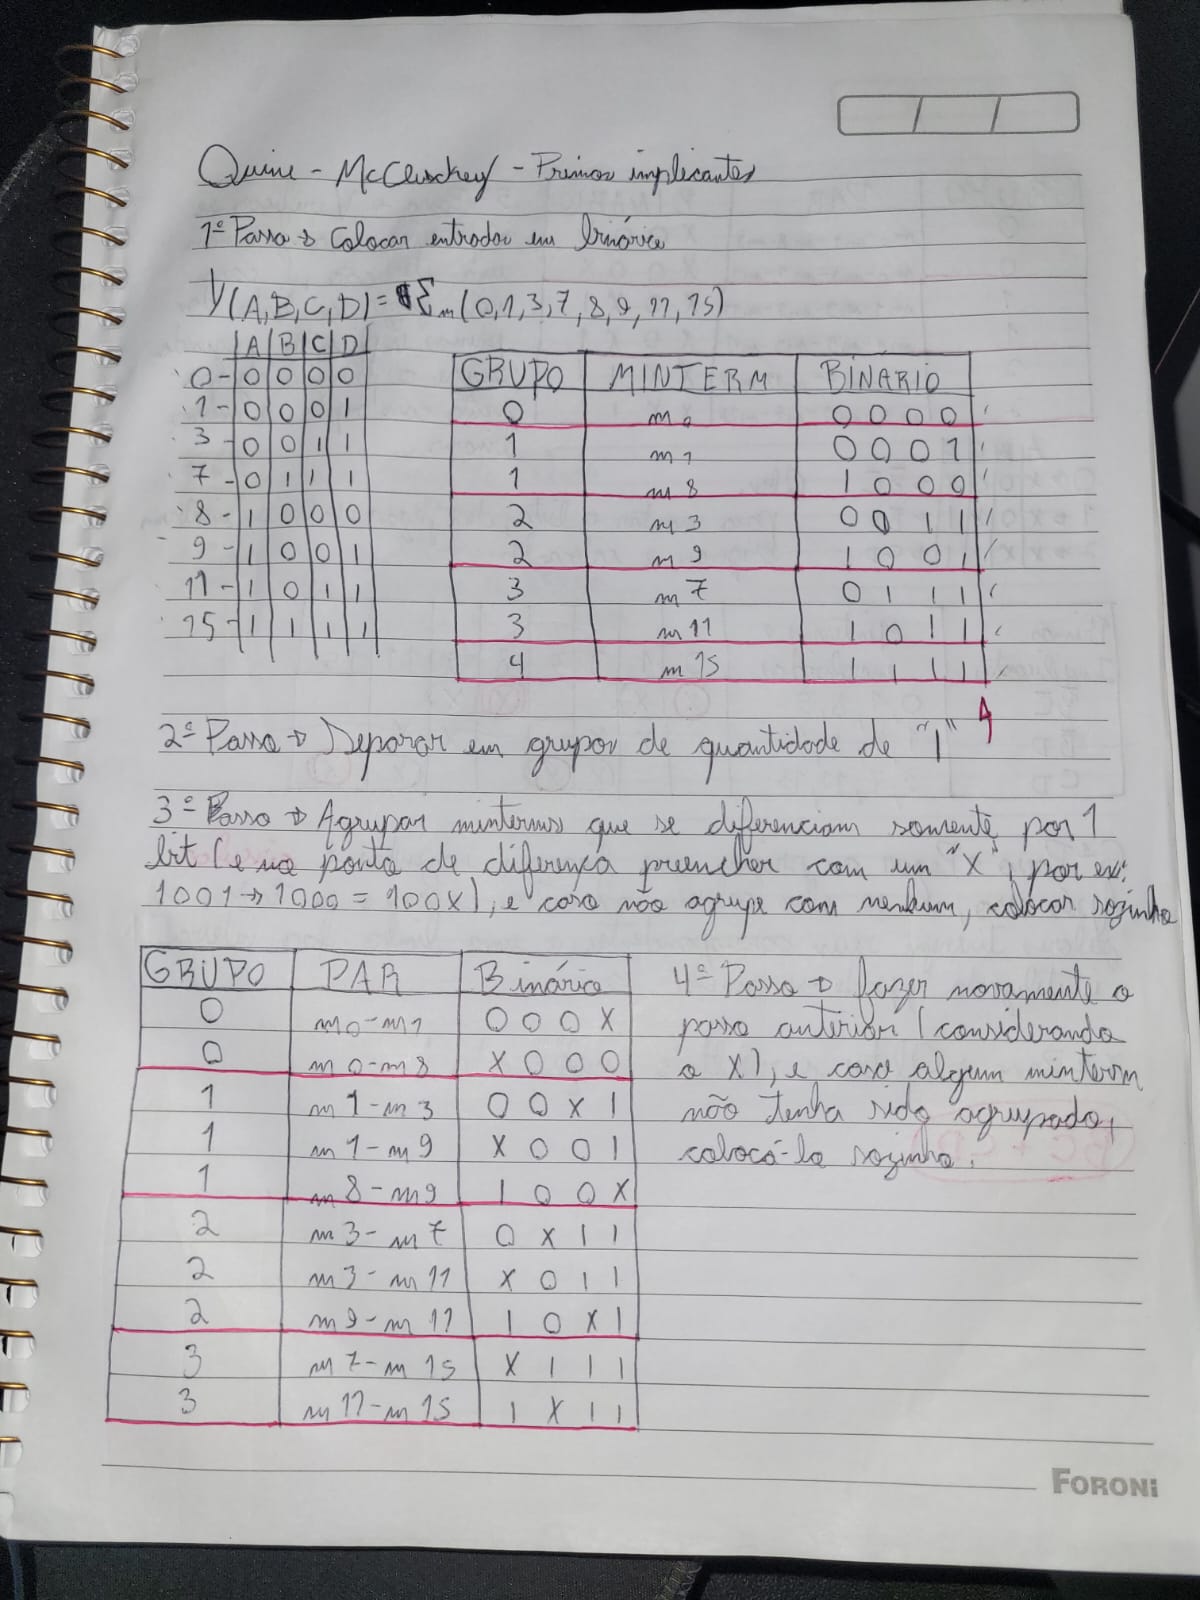 Quine - McCluschey - Primos implicantes
1º Passo → Colocar entradas em binário
Y(A,B,C,D) = Σm(0,1,3,7,8,9,11,15)
A B C D
0- 0 0 0 0
1- 0 0 0 1
3- 0 0 1 1
7- 0 1 1 1
8- 1 0 0 0
9- 1 0 0 1
11- 1 0 1 1
15- 1 1 1 1
GRUPO MINTERM BINÁRIO
0 m0 0 0 0 0
1 m1 0 0 0 1
1 m8 1 0 0 0
2 m3 0 0 1 1
2 m9 1 0 0 1
3 m7 0 1 1 1
3 m11 1 0 1 1
4 m15 1 1 1 1
2º Passo → Separar em grupos de quantidade de "1"
3º Passo → Agrupar minterms que se diferenciam somente por 1
bit (e na ponto de diferença preencher com um "X", por ex:
1001 → 1000 = 100X), e caso não agrupe com nenhum, colocar sozinho
GRUPO PAR Binário
0 m0-m1 0 0 0 X
0 m0-m8 X 0 0 0
1 m1-m3 0 0 X 1
1 m1-m9 X 0 0 1
1 m8-m9 1 0 0 X
2 m3-m7 0 X 1 1
2 m3-m11 X 0 1 1
2 m9-m11 1 0 X 1
3 m7-m15 X 1 1 1
3 m11-m15 1 X 1 1
4º Passo → fazer novamente o
passo anterior (considerando
o X), e caso algum minterm
não tenha sido agrupado,
colocá-lo sozinho.
FORONI